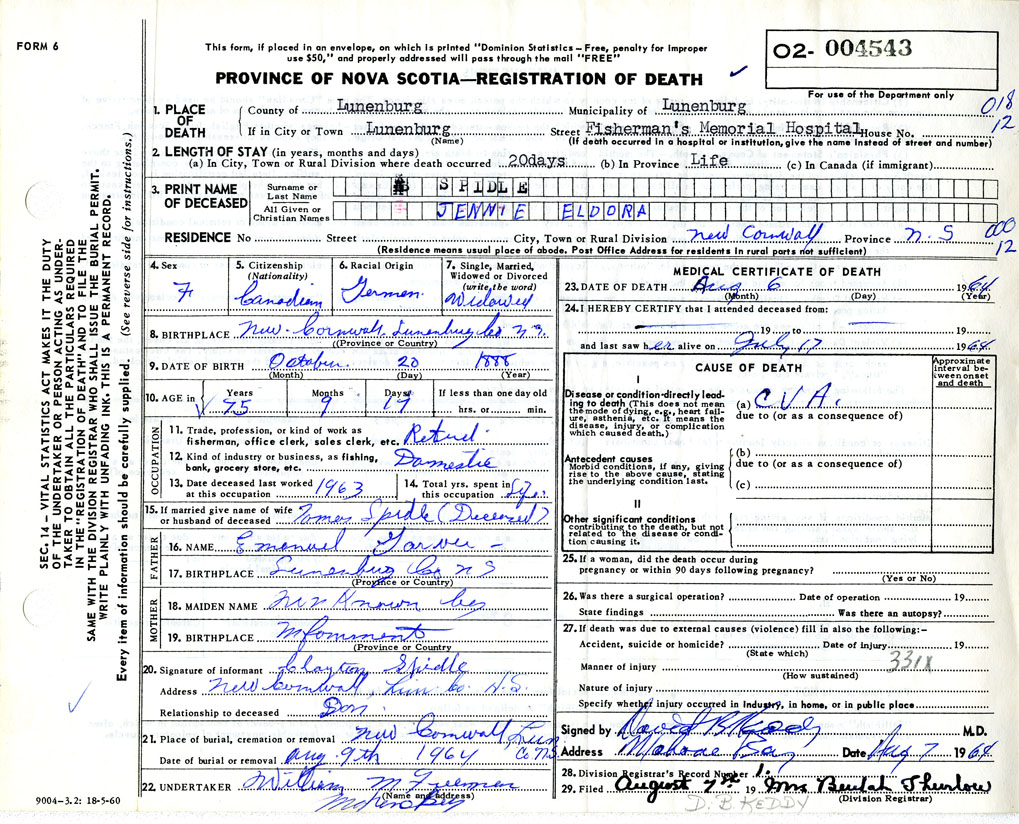 FORM 6
This form, if placed in an envelope, on which is printed "Dominion Statistics—Free, penalty for improper
use $50," and properly addressed will pass through the mail "FREE"
PROVINCE OF NOVA SCOTIA—REGISTRATION OF DEATH
02- 004543
For use of the Department only
018
12
1. PLACE OF DEATH
County of Lunenburg Municipality of Lunenburg
If in City or Town Lunenburg Street Fisherman's Memorial Hospital House No.
(Name) (If death occurred in a hospital or institution, give the name instead of street and number)
2. LENGTH OF STAY (in years, months and days)
(a) In City, Town or Rural Division where death occurred 20days (b) In Province Life (c) In Canada (if immigrant)
3. PRINT NAME OF DECEASED
Surname or Last Name SPIDLE
All Given or Christian Names JENNIE ELDORA
RESIDENCE No Street City, Town or Rural Division New Cornwall Province N.S 000
12
(Residence means usual place of abode. Post Office Address for residents in rural parts not sufficient)
4. Sex F
5. Citizenship (Nationality) Canadian
6. Racial Origin German
7. Single, Married, Widowed or Divorced (write the word) Widowed
8. BIRTHPLACE New Cornwall Lunenburg Co N.S.
(Province or Country)
9. DATE OF BIRTH October 20 1888
(Month) (Day) (Year)
10. AGE in Years 75 Months 9 Days 17 If less than one day old hrs. or min.
OCCUPATION
11. Trade, profession, or kind of work as
fisherman, office clerk, sales clerk, etc. Retired
12. Kind of industry or business, as fishing,
bank, grocery store, etc. Domestic
13. Date deceased last worked at this occupation 1963
14. Total yrs. spent in this occupation Life
15. If married give name of wife
or husband of deceased Spidle (Deceased)
FATHER
16. NAME Emanuel
17. BIRTHPLACE Lunenburg Co N S
(Province or Country)
MOTHER
18. MAIDEN NAME Known
19. BIRTHPLACE
(Province or Country
20. Signature of informant Clayton Spidle
Address New Cornwall, Lun. Co. N.S.
Relationship to deceased Son
21. Place of burial, cremation or removal New Cornwall Lun
Co N.S.
Date of burial or removal Aug 9th 1964
22. UNDERTAKER William M
(Name and address)
9004—3.2: 18-5-60
MEDICAL CERTIFICATE OF DEATH
23. DATE OF DEATH Aug 6 1964
(Month) (Day) (Year)
24. I HEREBY CERTIFY that I attended deceased from:
19 to 19
and last saw her alive on July 17 1964
CAUSE OF DEATH
Approximate interval between onset and death
I
Disease or condition directly leading to death (This does not mean the mode of dying, e.g., heart failure, asthenia, etc. It means the disease, injury, or complication which caused death.)
(a) C.V.A.
due to (or as a consequence of)
Antecedent causes
Morbid conditions, if any, giving rise to the above cause, stating the underlying condition last.
(b)
due to (or as a consequence of)
(c)
II
Other significant conditions
contributing to the death, but not related to the disease or condition causing it.
25. If a woman, did the death occur during
pregnancy or within 90 days following pregnancy?
(Yes or No)
26. Was there a surgical operation? Date of operation 19
State findings Was there an autopsy?
27. If death was due to external causes (violence) fill in also the following:—
Accident, suicide or homicide? Date of injury 19
(State which)
Manner of injury 331X
(How sustained)
Nature of injury
Specify whether injury occurred in Industry, in home, or in public place
Signed by David B Keddy M.D.
Address Mahone Bay Date Aug 7 1964
28. Division Registrar's Record Number 1.
29. Filed August 7th 19 Mrs Beulah Thurlow
(Division Registrar)
D. B. KEDDY
SEC. 14—VITAL STATISTICS ACT MAKES IT THE DUTY
OF THE UNDERTAKER OR PERSON ACTING AS UNDER-
TAKER TO OBTAIN ALL THE PARTICULARS REQUIRED
IN THE "REGISTRATION OF DEATH" AND TO FILE THE
SAME WITH THE DIVISION REGISTRAR WHO SHALL ISSUE THE BURIAL PERMIT.
WRITE PLAINLY WITH UNFADING INK. THIS IS A PERMANENT RECORD.
Every item of information should be carefully supplied. (See reverse side for instructions.)